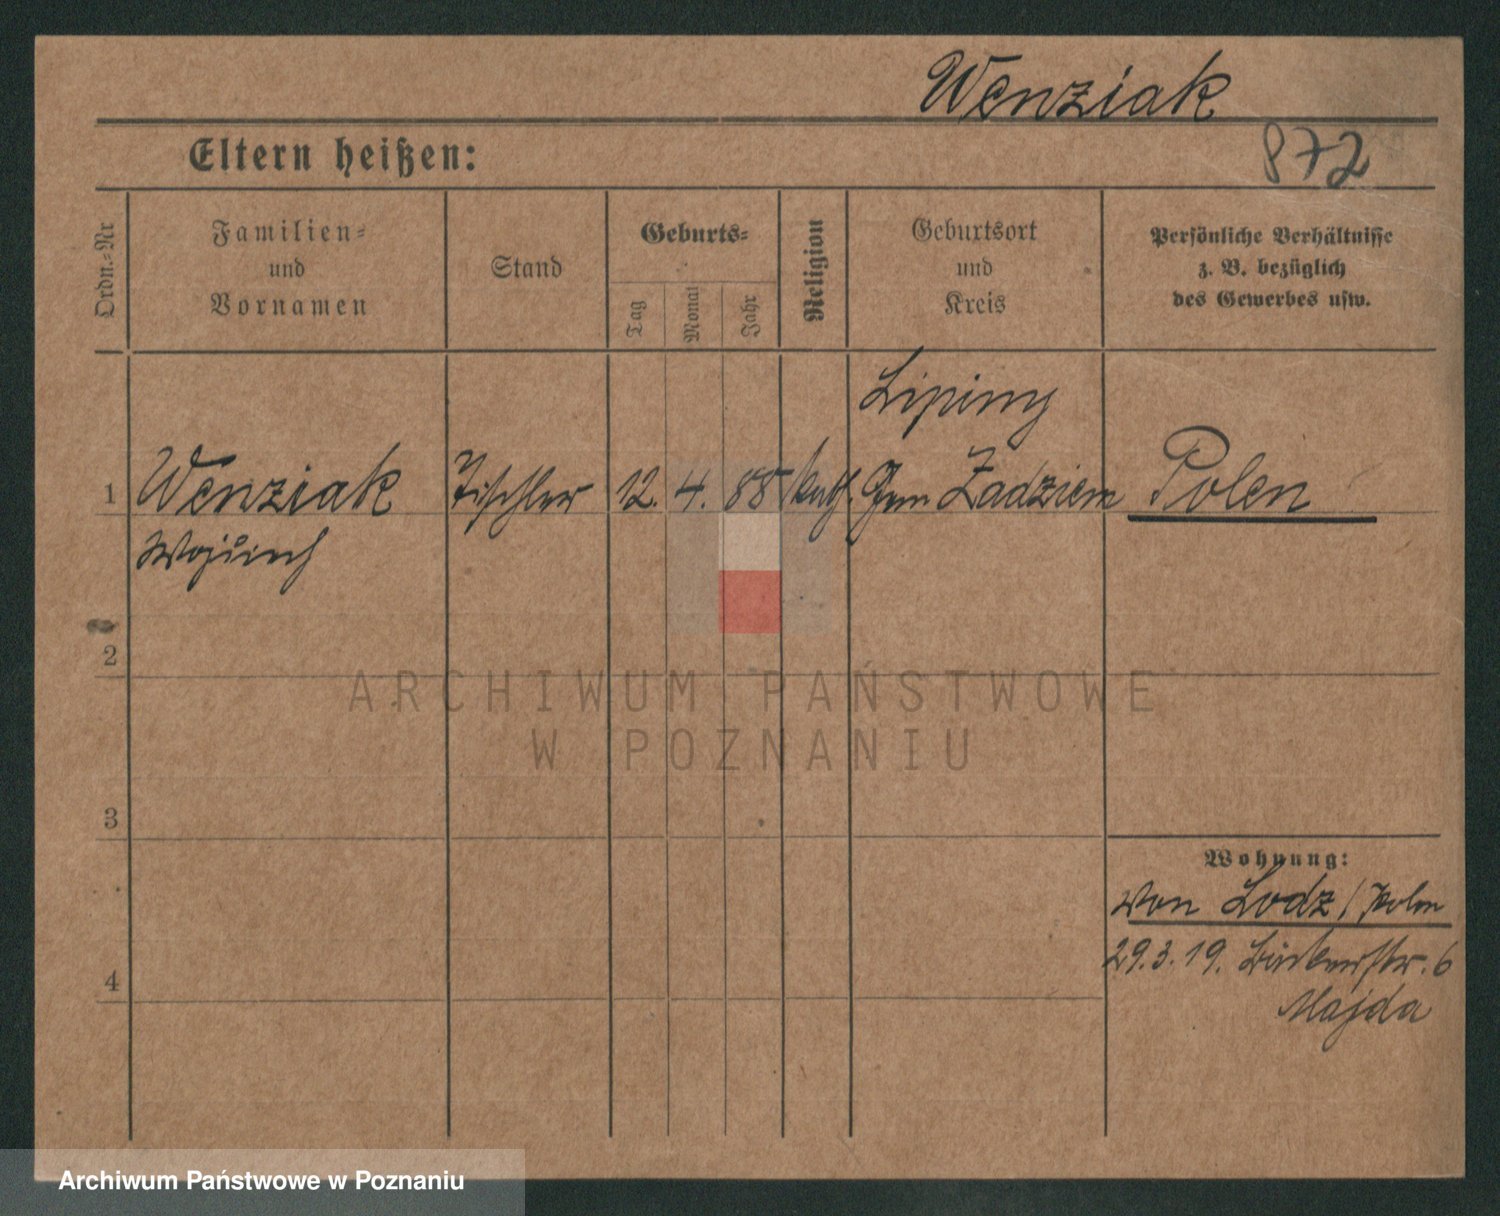 Wenziak
872
Eltern heißen:
Ordn.-Nr
Familien-
und
Vornamen
Stand
Geburts-
Tag
Monat
Jahr
Religion
Geburtsort
und
Kreis
Persönliche Verhältnisse
z. B. bezüglich
des Gewerbes usw.
Lipiny
1 Wenziak Tischler 12. 4. 88 kath. Gem Zadziem Polen
2
ARCHIWUM PAŃSTWOWE
W POZNANIU
3
Wohnung:
von Lodz / Polen
29.3.19. 6
4
Majda
Archiwum Państwowe w Poznaniu